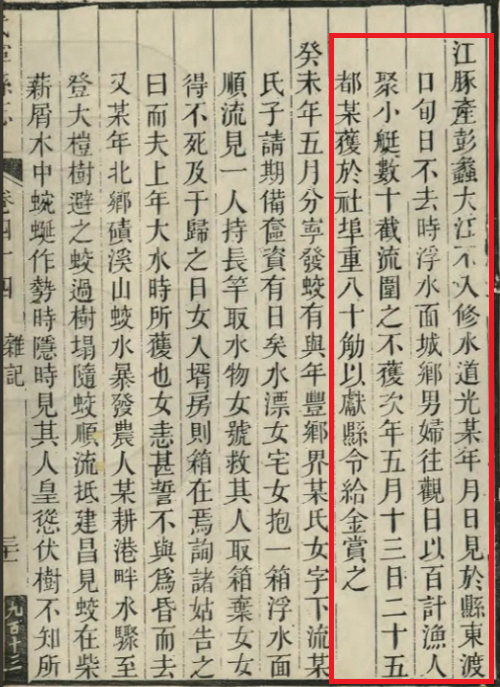 江豚產彭蠡大江不入修水道光某年月日見於縣東渡
口旬日不去時浮水面城鄉男婦往觀日以百計漁人
聚小艇數十截流圍之不獲次年五月十三日二十五
都某獲於社埠重八十觔以獻縣令給金賞之
癸未年五月分寧發蛟有與年豐鄉界某氏女字下流某
氏子請期備奩資有日矣水漂女宅女抱一箱浮水面
順流見一人持長竿取水物女號救其人取箱棄女女
得不死及于歸之日女入壻房則箱在焉詢諸姑告之
曰而夫上年大水時所獲也女恚甚誓不與爲昏而去
又某年北鄉磧溪山蛟水暴發農人某耕港畔水驟至
登大榿樹避之蛟過樹塌隨蛟順流抵建昌見蛟在柴
薪屑水中蜿蜒作勢時隱時見其人皇慫伏樹不知所
卷四十四 雜記
九百十三